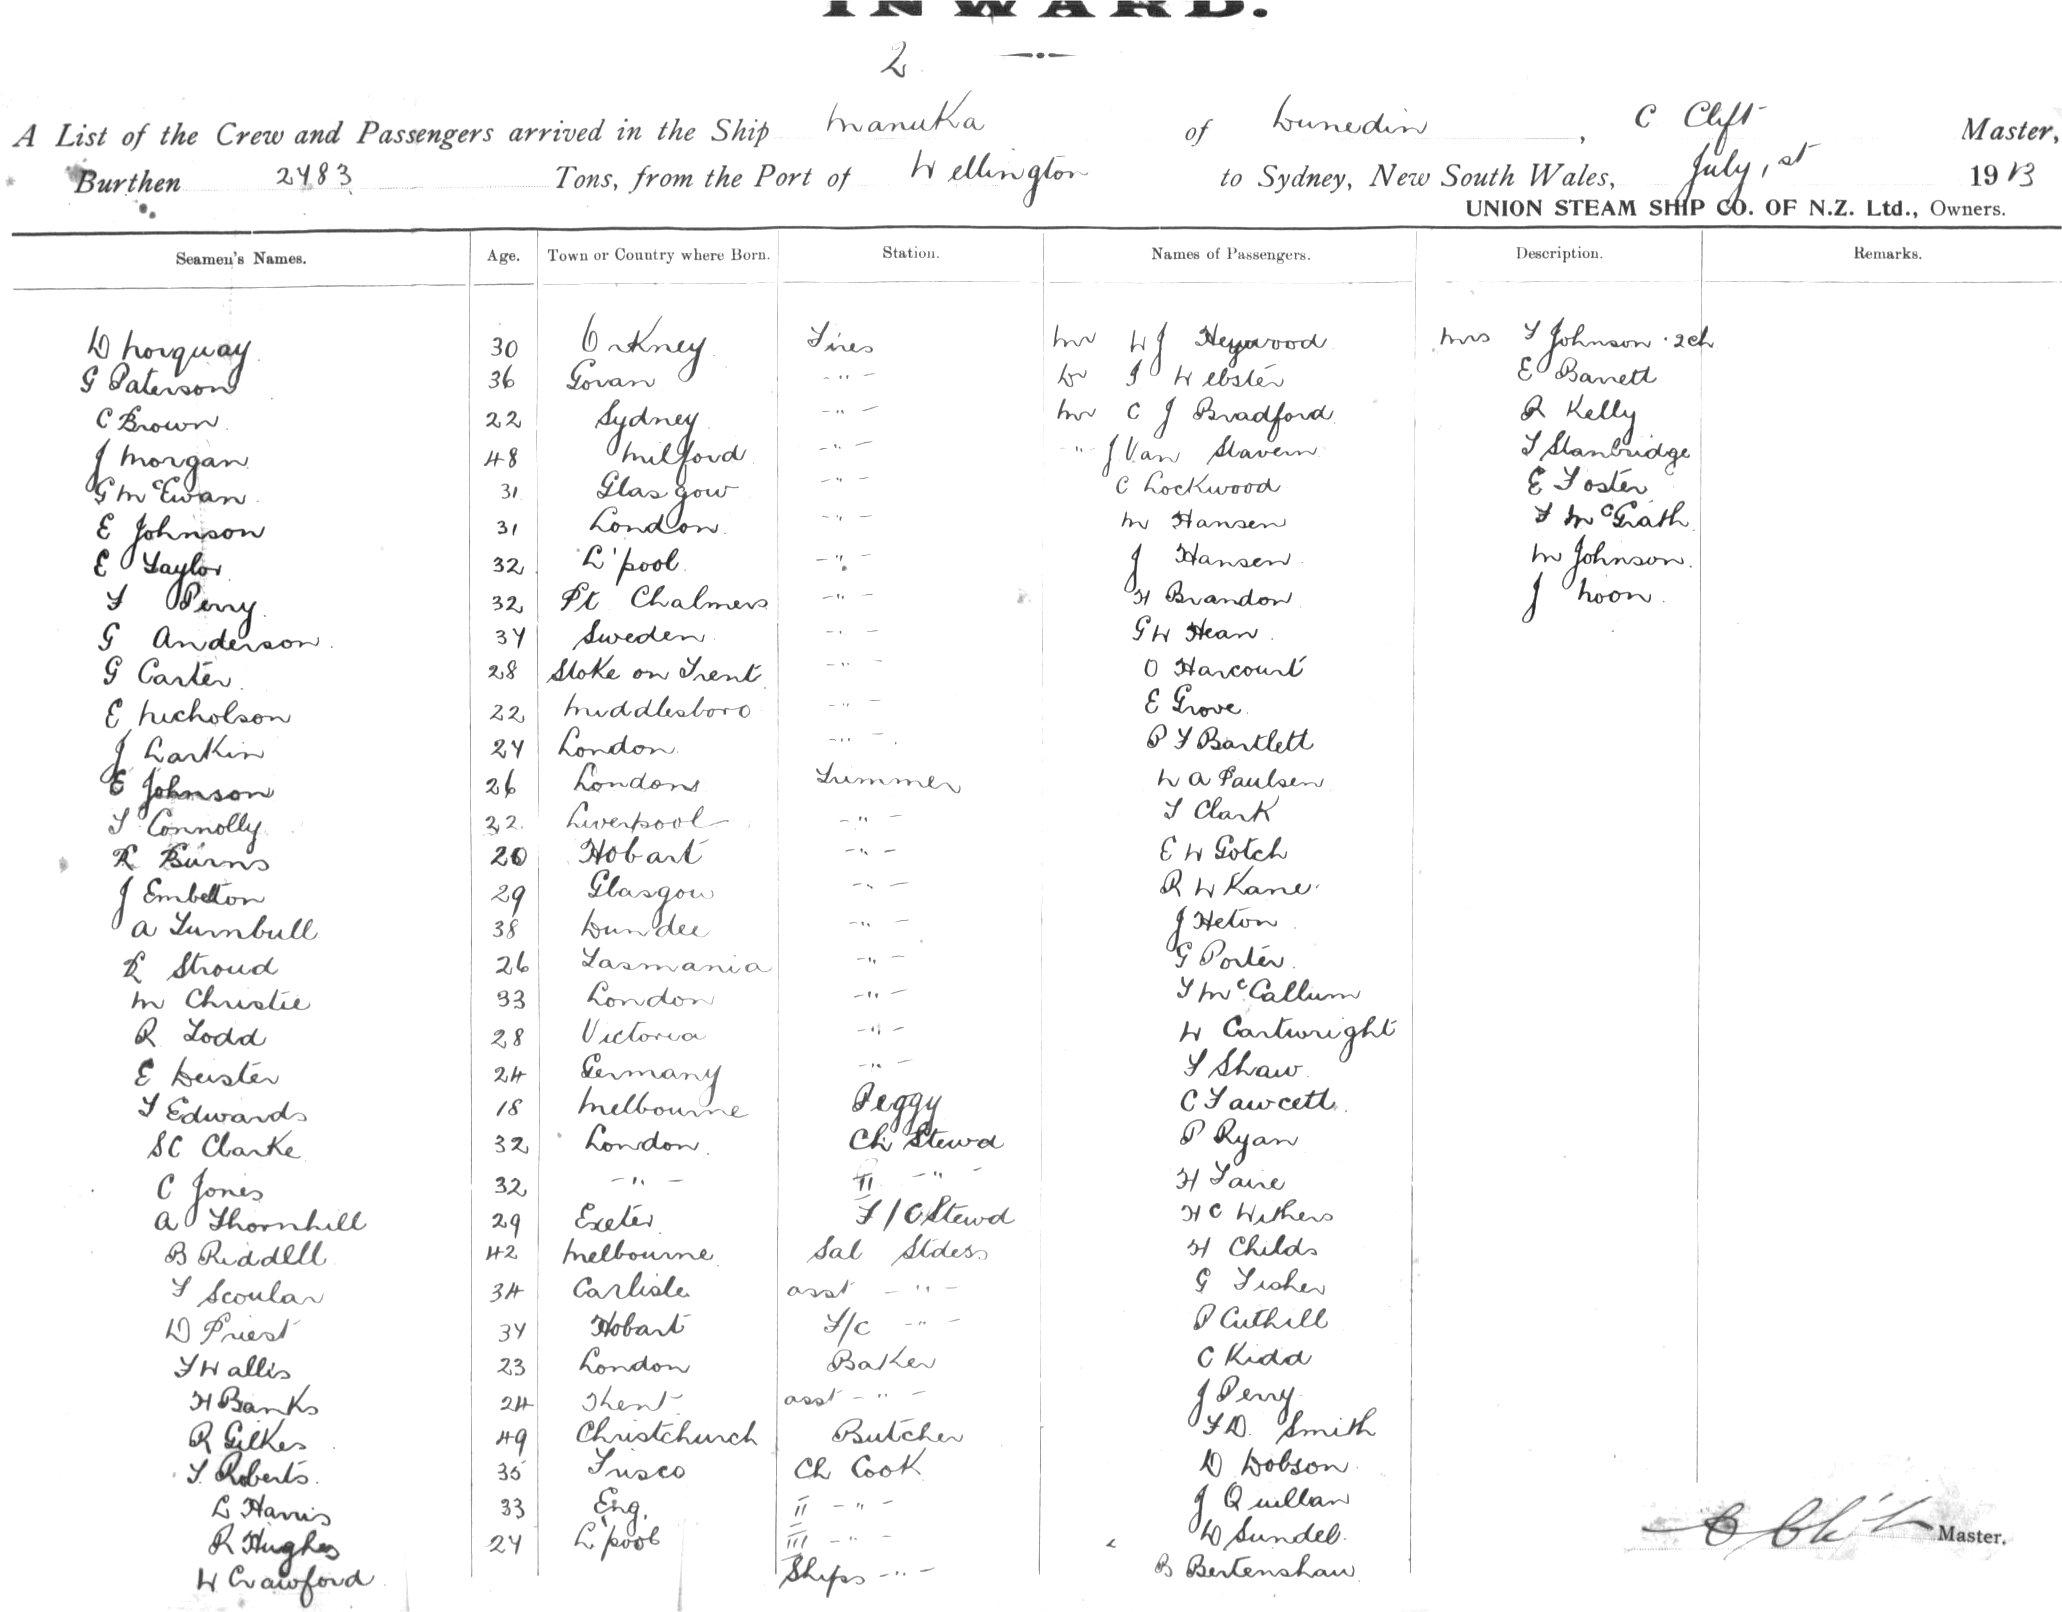 INWARD.
2
A List of the Crew and Passengers arrived in the Ship Manuka of Dunedin, C Clift Master,
Burthen 2483 Tons, from the Port of Wellington to Sydney, New South Wales, July, 1st 1913
UNION STEAM SHIP CO. OF N.Z. Ltd., Owners.
Seamen's Names. Age. Town or Country where Born. Station. Names of Passengers. Description. Remarks.
D Norquay 30 Orkney Fires Mr W J Heywood Mrs F Johnson . 2 ch
G Paterson 36 Govan - " - Dr J Webster E Barrett
C Brown 22 Sydney - " - Mr C J Bradford R Kelly
J Morgan 48 Milford - " - " J Van Stavern F Stanbridge
G McEwan 31 Glasgow - " - C Lockwood E Foster
E Johnson 31 London - " - M Hansen F McGrath
E Taylor 32 L'pool - " - J Hansen M Johnson
F Perry 32 Pt Chalmers - " - H Brandon J Noon
G Anderson 34 Sweden - " - G W Hean
G Carter 28 Stoke on Trent - " - O Harcourt
E Nicholson 22 Middlesboro - " - E Grove
J Larkin 24 London - " - P F Bartlett
E Johnson 26 London Trimmer W A Paulsen
T Connolly 32 Liverpool - " - T Clark
R Burns 20 Hobart - " - E W Gotch
J Embelton 29 Glasgow - " - R W Kane
A Turnbull 38 Dundee - " - J Heton
R Stroud 26 Tasmania - " - G Porter
M Christie 33 London - " - T McCallum
R Todd 28 Victoria - " - W Cartwright
E Deister 24 Germany - " - F Shaw
T Edwards 18 Melbourne Peggy C Fawcett
S C Clarke 32 London Ch Stewd P Ryan
C Jones 32 - " - II - " - H Taire
A Thornhill 29 Exeter F/C Stewd H C Withers
B Riddell 42 Melbourne Sal Stdess H Childs
F Scoular 34 Carlisle asst - " - G Fisher
D Priest 34 Hobart F/C - " - P Cuthill
F Wallis 23 London Baker C Kidd
H Banks 24 Kent asst - " - J Perry
R Gilkes 49 Christchurch Butcher F D Smith
T Roberts 35 Frisco Ch Cook D Dobson
L Harris 33 Eng. II - " - J Quillan
R Hughes 24 L'pool III - " - W Sundel
W Crawford Ships - " - B Bertenshaw
Master.